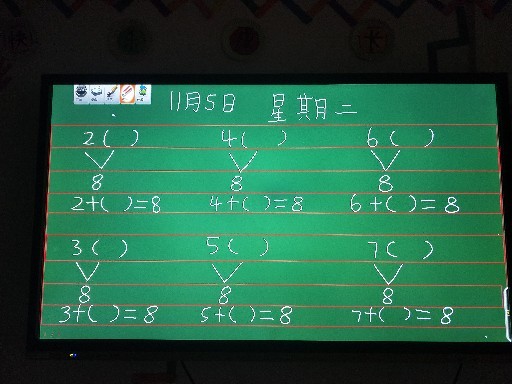 11月5日 星期二
2( ) 4( ) 6( )
8 8 8
2+( )=8 4+( )=8 6+( )=8
3( ) 5( ) 7( )
8 8 8
3+( )=8 5+( )=8 7+( )=8